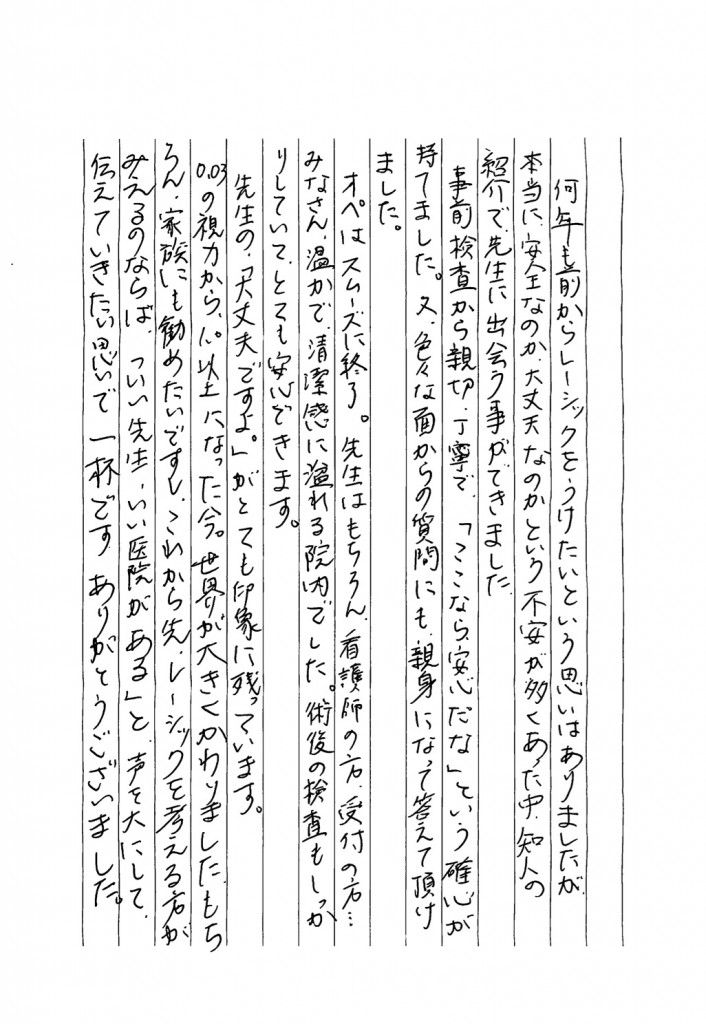 何年も前からレーシックをうけたいという思いはありましたが、
本当に、安全なのか、大丈夫なのかという不安が多くあった中、知人の
紹介で、先生に出会う事ができました。
事前検査から親切、丁寧で、「ここなら、安心だな」という確心が
持てました。又、色々な面からの質問にも、親身になって答えて頂け
ました。
オペはスムーズに終了。先生はもちろん、看護師の方、受付の方…
みなさん、温かで、清潔感に溢れる院内でした。術後の検査もしっか
りしていて、とても安心できます。
先生の、「大丈夫ですよ。」がとても印象に残っています。
0.03の視力から、1.0以上になった今。世界が大きくかわりました。もち
ろん、家族にも勧めたいですし、これから先、レーシックを考える方が
みえるのならば、「いい先生、いい医院がある」と、声を大にして、
伝えていきたい思いで一杯です。ありがとうございました。